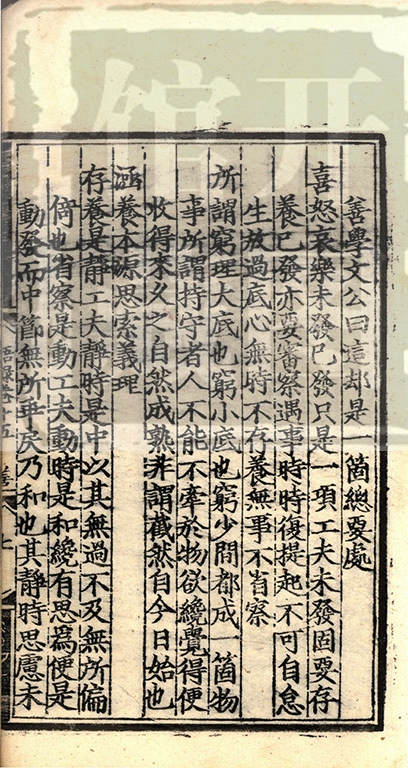 善學文公曰這却是一箇總要處
喜怒哀樂未發已發只是一項工夫未發固要存
養已發亦要審察遇事時時復提起不可自怠
生放過底心無時不存養無事不省察
所謂窮理大底也窮小底也窮少間都成一箇物
事所謂持守者人不能不牽於物欲纔覺得便
收得來久之自然成熟非謂截然自今日始也
涵養本源思索義理
存養是靜工夫靜時是中以其無過不及無所偏
倚也省察是動工夫動時是和纔有思為便是
動發而中節無所乖戾乃和也其靜時思慮未